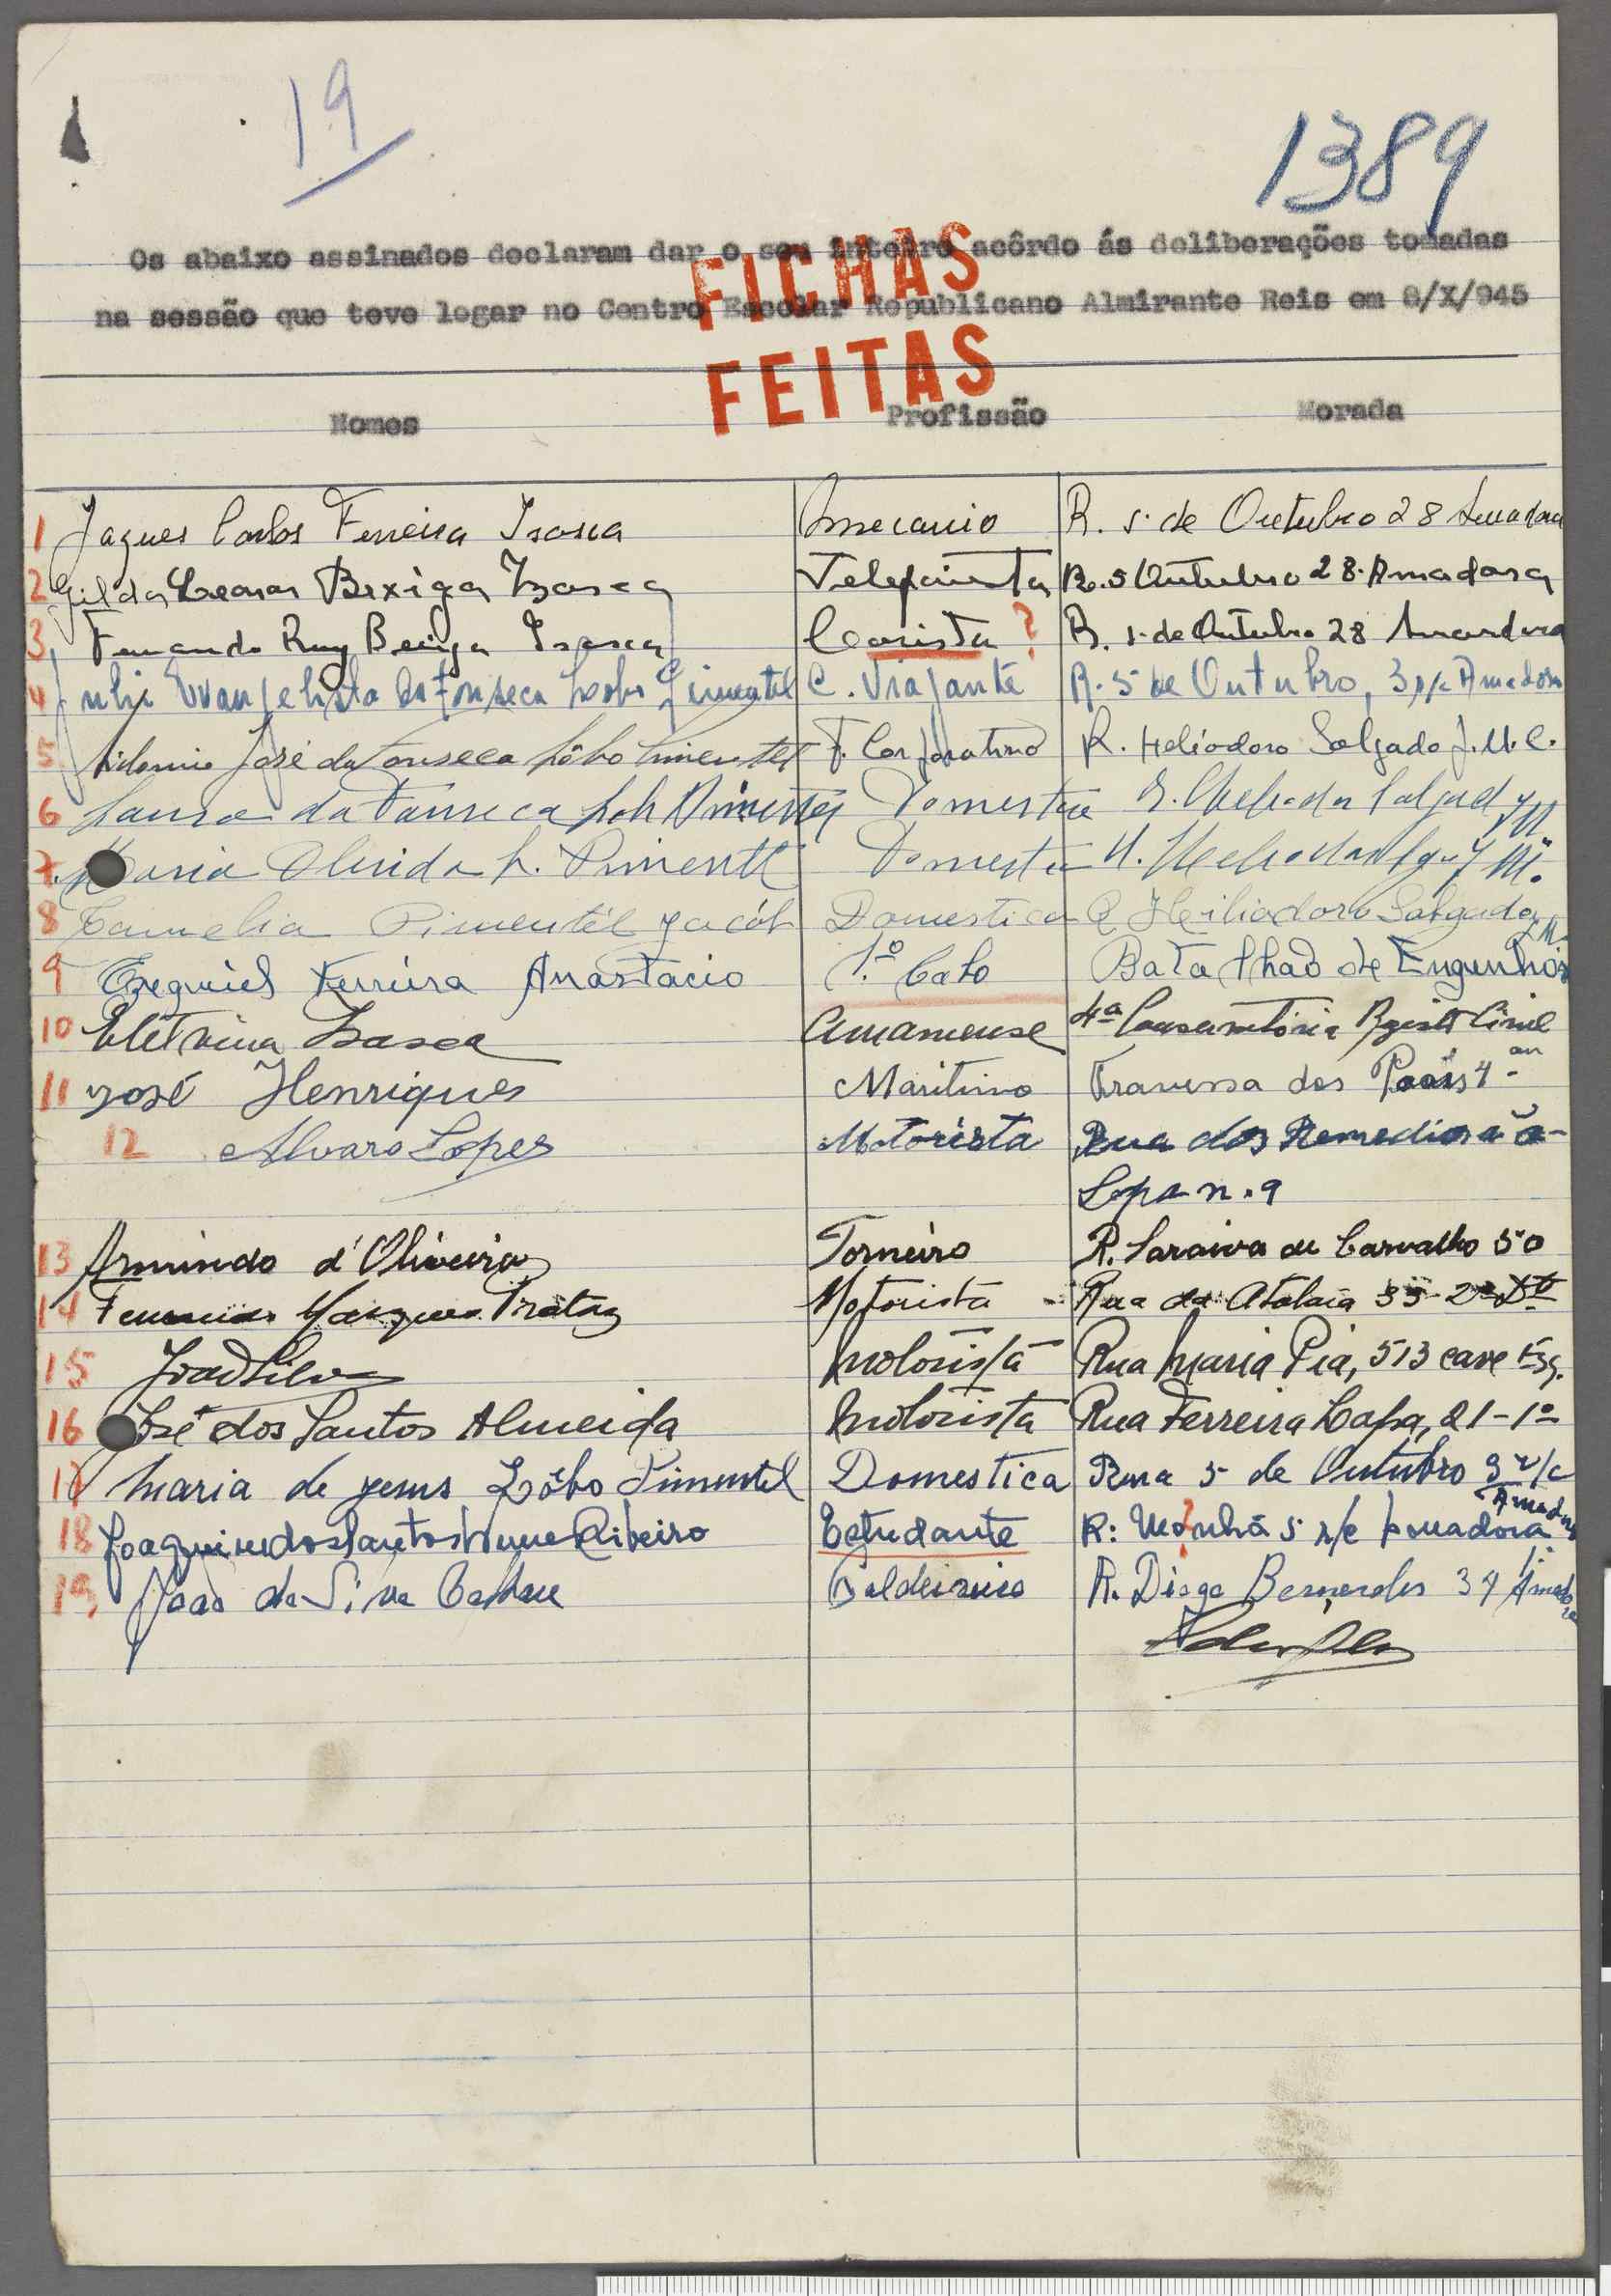 19
1389
Os abaixo assinados declaram dar o seu inteiro acôrdo ás deliberações tomadas
na sessão que teve logar no Centro Escolar Republicano Almirante Reis em 8/X/945
FICHAS
FEITAS
Nomes Profissão Morada
1 Jaques Carlos Ferreira Isasca mecanio R. 5 de Outubro 28 Amadora
2 Gilda Leonor Bexiga Isasca Telefonista R. 5 Outubro 28. Amadora
3 Fernando Ruy Bexiga Isasca Corista ? R. 5 de Outubro 28 Amadora
4 Evangelista da Fonseca Lobo Pimentel C. Viajante R. 5 de Outubro, 3 r/c Amadora
5 José da Fonseca Lôbo Pimentel F. Corporativo R. Heliodoro Salgado J. M. C.
6 Laura da Fonseca Lobo Pimentel Domestica
7. Maria Olinda L. Pimentel Domestica
8 Camelia Pimentél Jacób Domestica R Heiliodoro Salgado J M
9 Ezequiel Ferreira Anastacio 1.º Cabo Batalhão de Engenhos
10 Isasca Amanuense 4ª Conservatória Registo Civil
11 José Henriques Maritimo Travessa dos 4
12 Alvaro Lopes Motorista Rua dos Remedios á
Lapa n. 9
13 Armindo d'Oliveira Torneiro R. Saraiva de Carvalho 50
14 Marques Pratas Motorista Rua da Atalaia 35-2º Dto
15 João Silva Motorista Rua Maria Pia, 513 cave Esq.
16 José dos Santos Almeida Motorista Rua Ferreira Lapa, 21-1º
17 Maria de Jesus Lôbo Pimentel Domestica Rua 5 de Outubro 3 r/c
Amadora
18 Joaquim dos Santos Nunes Ribeiro Estudante R: 5 r/c Amadora
19, João da Silva Caldeireiro R. Diogo Bernardes 34 Amadora